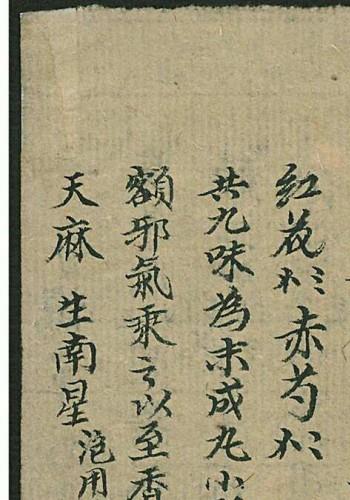 紅花 赤芍
共九味為末成丸小
額邪氣乘之以至香
天麻 生南星 泡用